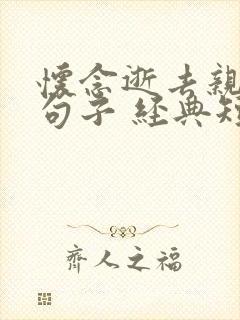 懷念逝去親
句子 經典短
齊人之福